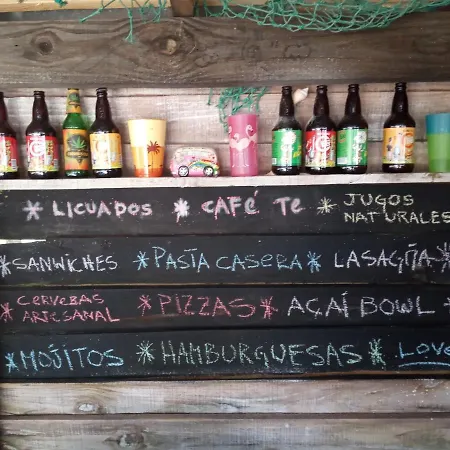 * LICUADOS * CAFÉ TE * JUGOS
NATURALES
*SANWICHES *PASTA CASERA* LASAGÑA*
* CERVEBAS
ARTESANAL * PIZZAS * AÇAÍ BOWL *
*MOJITOS *HAMBURGUESAS* LOVE